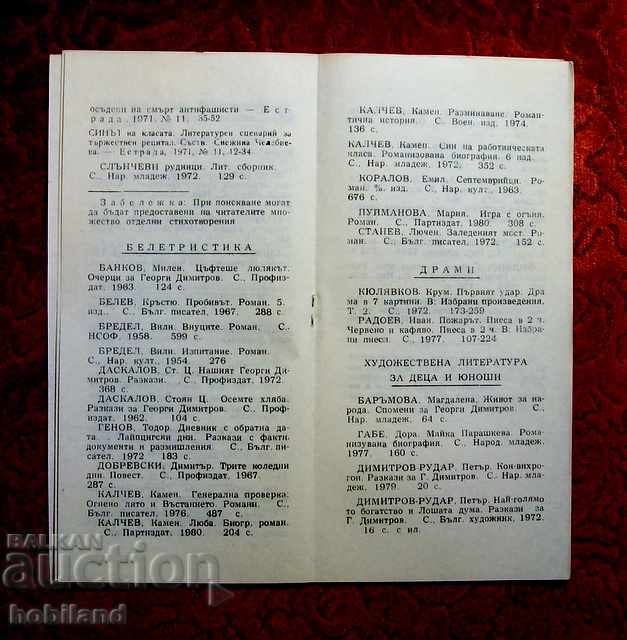 осъдени на смърт антифашисти — Ест
рада, 1971, № 11, 35-52
СИНЪТ на класата. Литературен сценарий за
тържествен рецитал. Съств. Снежина Челебие-
ва. — Естрада, 1971, № 11, 12-34.
СЛЪНЧЕВИ рудници. Лит. сборник.
С., Нар. младеж. 1972. 129 с.
Забележка: При поискване могат
да бъдат предоставени на читателите мно-
жество отделни стихотворения
БЕЛЕТРИСТИКА
БАНКОВ, Милен. Цъфтеше люлякът.
Очерци за Георги Димитров. С., Профиз-
дат. 1963. 124 с.
БЕЛЕВ, Кръстю. Пробивът. Роман. 5.
изд.. С., Бълг. писател, 1967. 288 с.
БРЕДЕЛ, Вили. Внуците. Роман. С.,
НСОФ, 1958. 599 с.
БРЕДЕЛ, Вили. Изпитание. Роман.
С., Нар. култ., 1954. 276
ДАСКАЛОВ, Ст. Ц. Нашият Георги Ди-
митров. Разкази. С., Профиздат. 1972.
368 с.
ДАСКАЛОВ, Стоян Ц. Осемте хляба.
Разкази за Георги Димитров. С., Проф-
издат, 1962. 104 с.
ГЕНОВ, Тодор. Дневник с обратна да-
та. Лайпцигски дни. Разкази с факти,
документи и размишления. С., Бълг. писа-
тел. 1972 183 с.
ДОБРЕВСКИ, Димитър. Трите коледни
дни. Повест. С., Профиздат, 1967.
287 с.
КАЛЧЕВ, Камен. Генерална проверка.
Огнено лято и Въстанието. Романи. С.,
Бълг. писател, 1976. 487 с.
КАЛЧЕВ, Камен. Люба. Биогр. роман.
С., Партиздат. 1980. 204 с.
КАЛЧЕВ, Камен. Разминаване. Роман-
тична история. С. Воен. изд. 1974.
136 с.
КАЛЧЕВ, Камен. Син на работническата
класа. Романизована биография. 6 изд..
С., Нар. младеж, 1972. 352 с.
КОРАЛОВ, Емил. Септемврийци. Ро-
ман. изд. С., Нар. култ., 1963.
676 с.
ПУЙМАНОВА, Мария. Игра с огъня.
Роман. С., Партиздат. 1980. 308 с.
СТАНЕВ, Лючен. Заледеният мост. Ро-
ман. С., Бълг. писател, 1972. 152 с.
ДРАМИ
КЮЛЯВКОВ, Крум. Първият удар. Дра
ма в 7 картини. В: Избрани произведения.
Т. 2. С., 1972. 173-259
РАДОЕВ, Иван. Пожарът. Пиеса в 2 ч. В:
Червено и кафяво. Пиеса в 2 ч. В: Избра-
ни пиеси. С., 1977. 107-224
ХУДОЖЕСТВЕНА ЛИТЕРАТУРА
ЗА ДЕЦА И ЮНОШИ
БАРЪМОВА, Магдалена. Живот за на-
рода. Спомени за Георги Димитров. С.,
Нар. младеж. 64 с.
ГАБЕ, Дора. Майка Парашкева. Рома-
низувана биография. С., Народ. младеж.
1977. 160 с.
ДИМИТРОВ-РУДАР, Петър. Кон-вихро-
гон. Разкази за Г. Димитров. С., Нар. мла-
деж. 1979. 20 с.
ДИМИТРОВ-РУДАР, Петър. Най-голямо-
то богатство и Лошата дума. Разкази за
Г. Димитров. С., Бълг. художник, 1972.
16 с. с ил.
BALKAN
auction
hobiland